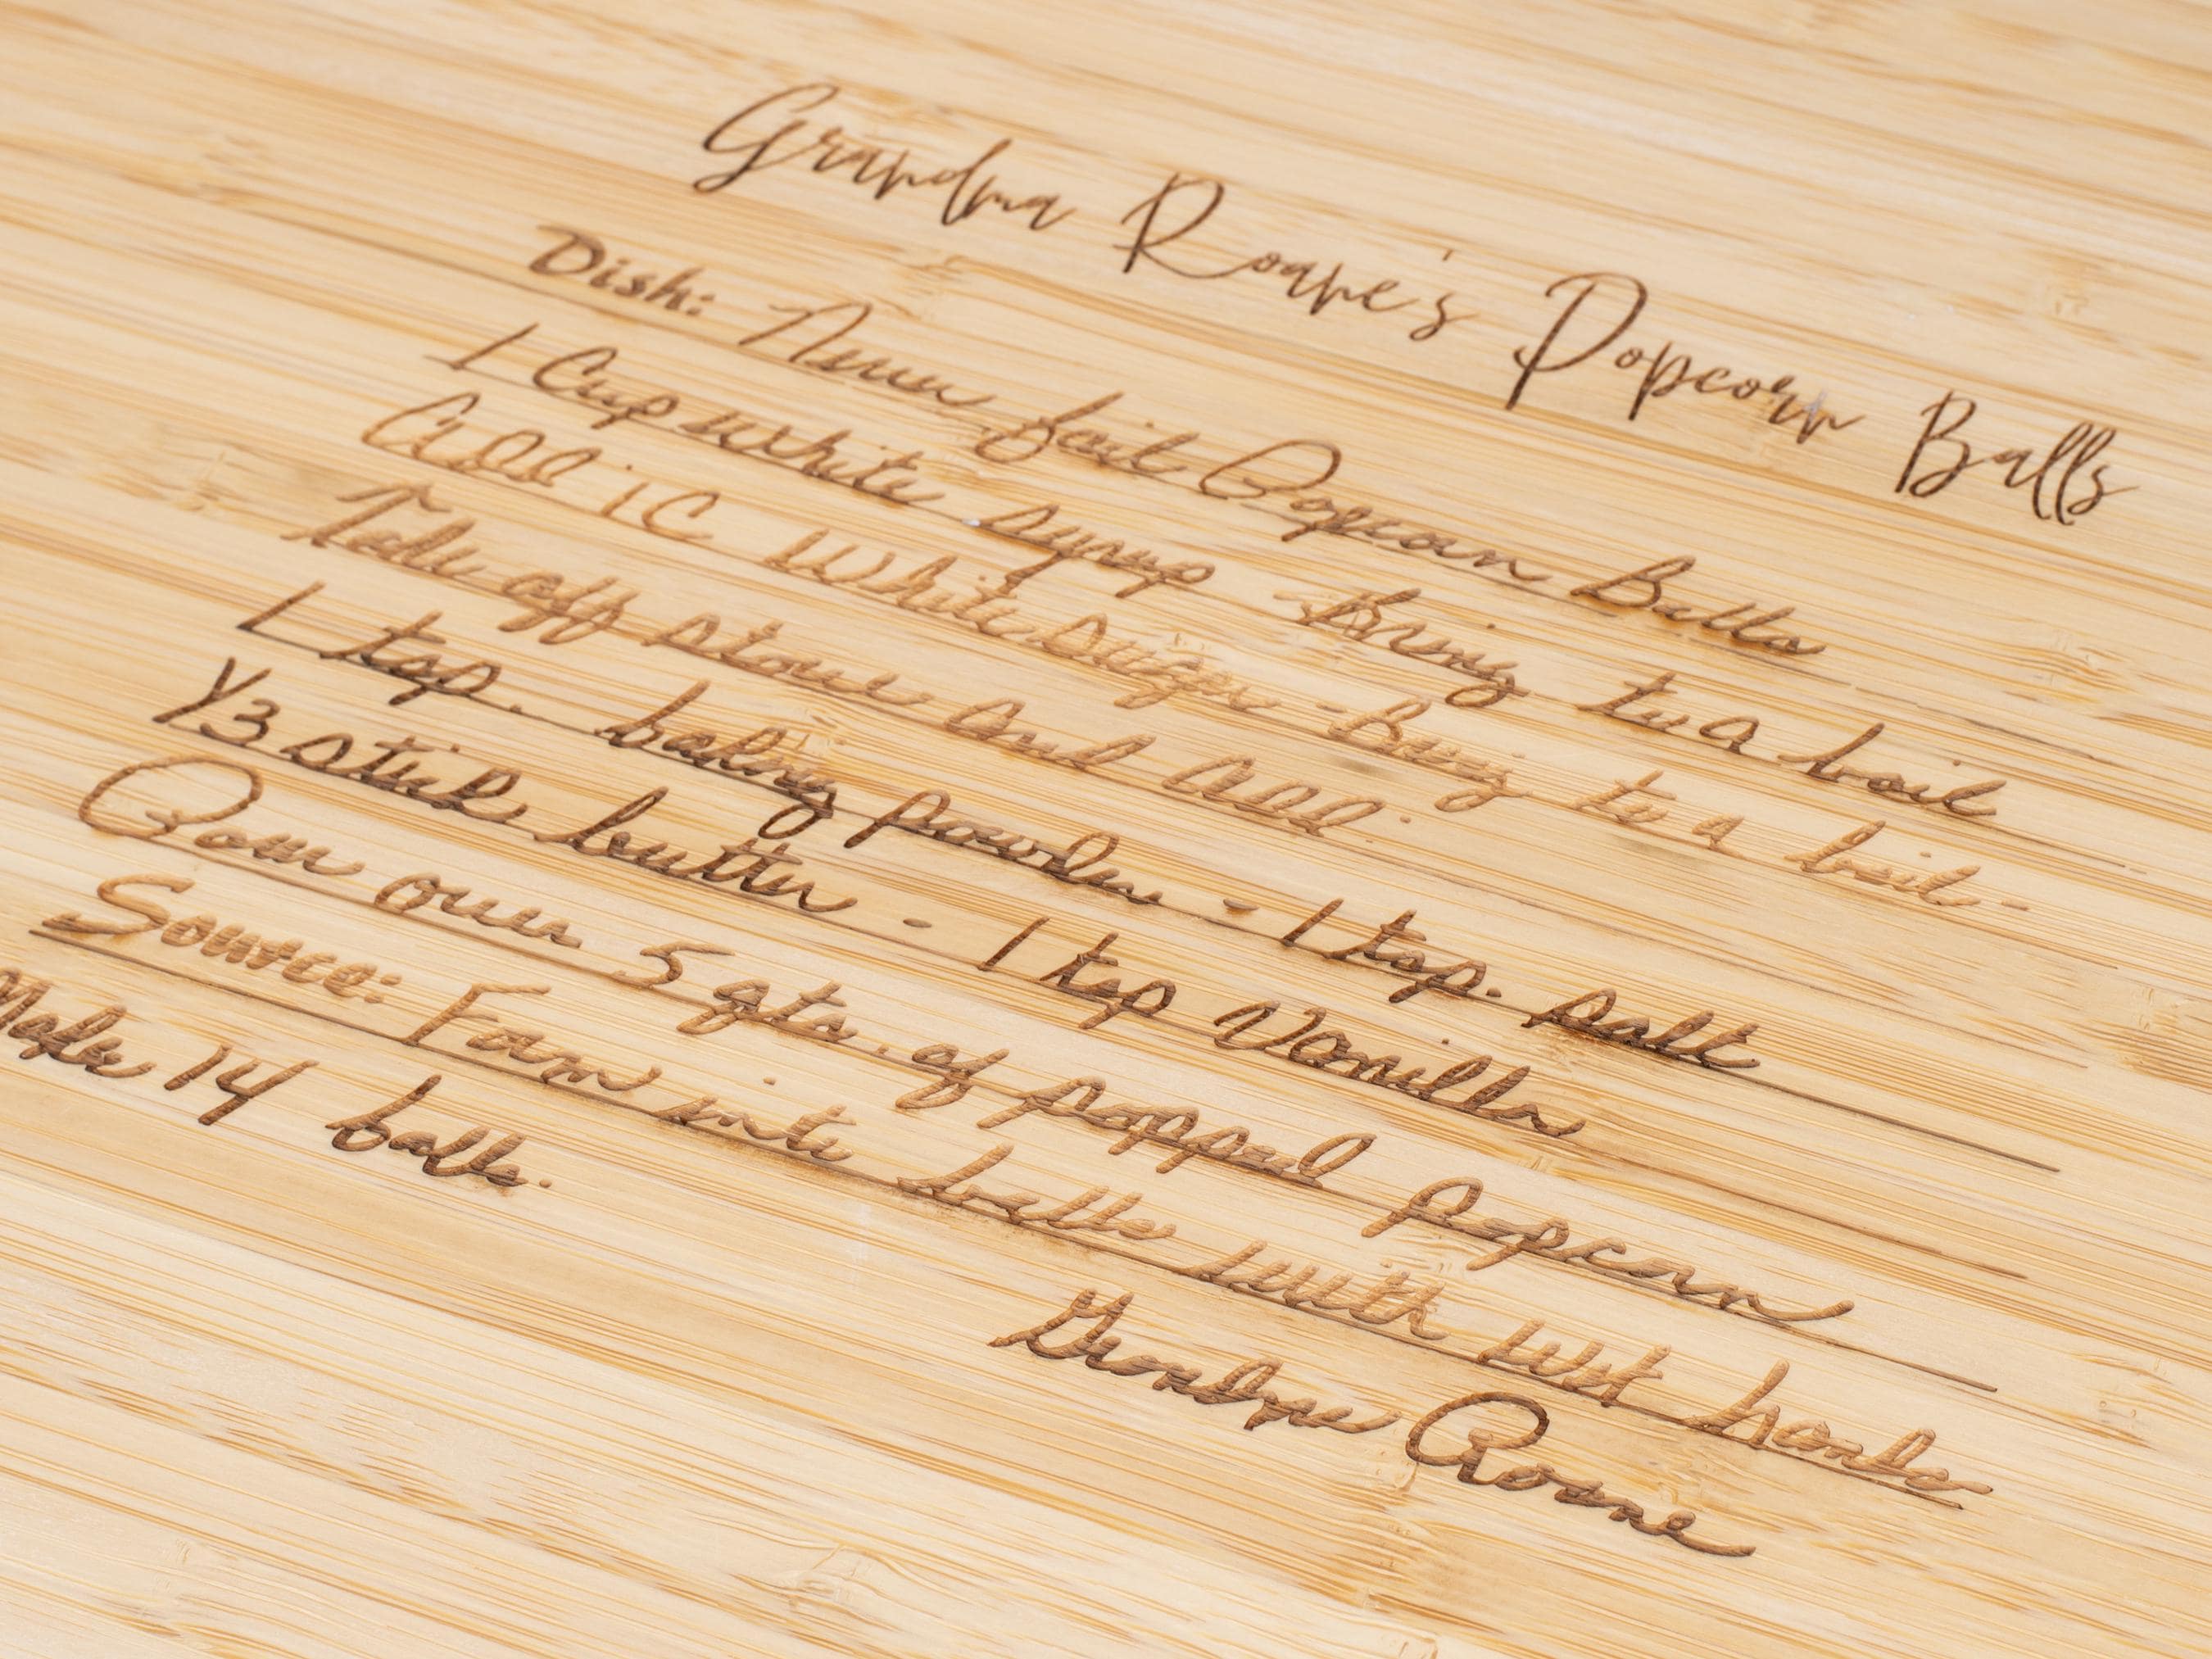 Grandma Roane's Popcorn Balls
Dish: Never fail Popcorn Balls
1 Cup white syrup - Bring to a boil
Add 1 C White sugar - Bring to a boil -
Take off stove and add:
1 tsp. baking powder - 1 tsp. salt
1/3 stick butter - 1 tsp Vanilla
Pour over 5 qts. of popped popcorn
Source: Form into balls with wet hands
Makes 14 balls.
Grandma Roane